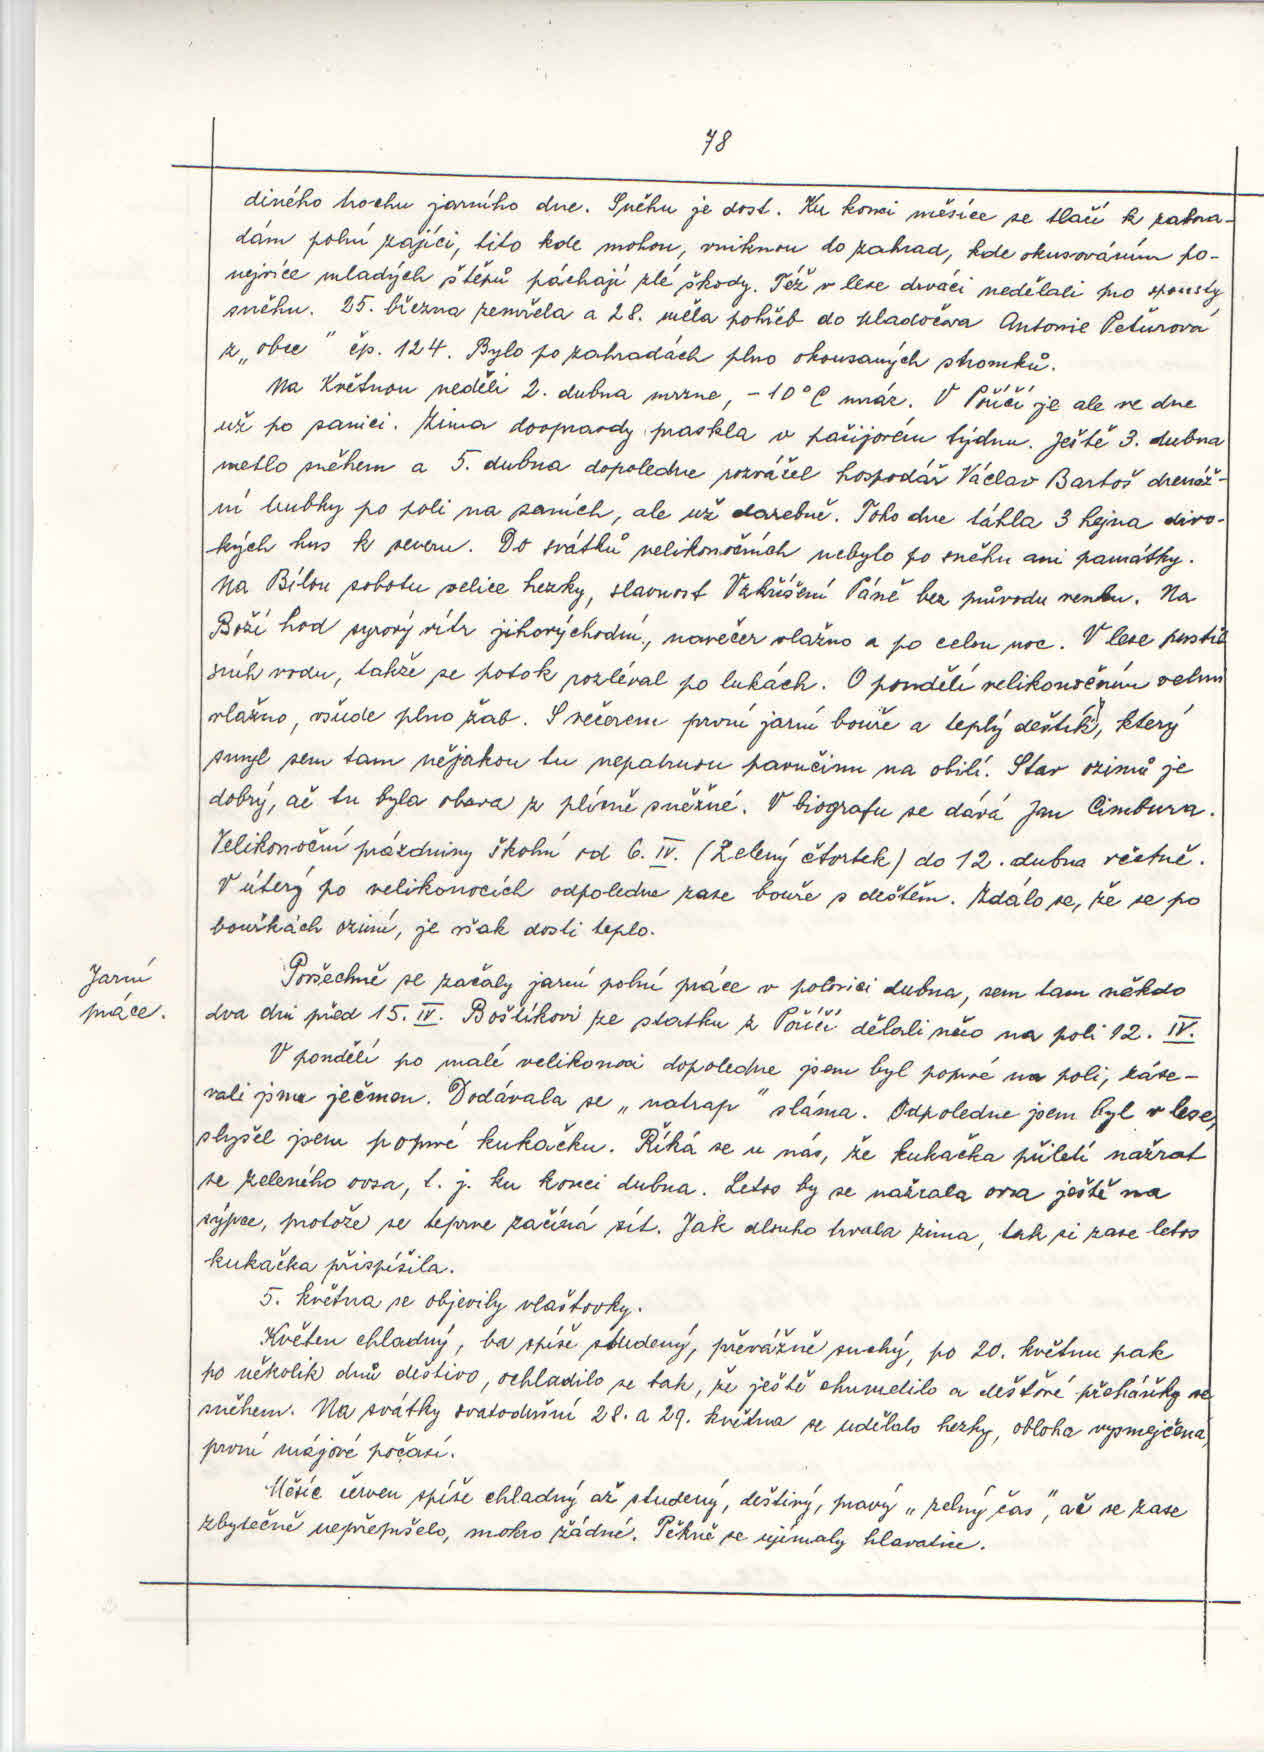 78
diného trochu jarního dne. Sněhu je dost. Ku konci měsíce se tlačí k zahra-
dám polní zajíci, tito kde mohou, vniknou do zahrad, kde okusováním po-
nejvíce mladých štěpů páchají zlé škody. Též v lese drváci nedělali pro spousty
sněhu. 25. března zemřela a 28. měla pohřeb do Hladočeva Antonie Pečurová
z „obce" čp. 124. Bylo po zahradách plno okousaných stromků.
Na Květnou neděli 2. dubna mrzne, -10°C mráz. V Poříčí je ale ve dne
už po sanici. Zima doopravdy praskla v pašijovém týdnu. Ještě 3. dubna
metlo sněhem a 5. dubna dopoledne rozvážel hospodář Václav Bartoš drenáž-
ní trubky po poli na saních, ale už darebně. Toho dne táhla 3 hejna divo-
kých hus k severu. Do svátků velikonočních nebylo po sněhu ani památky.
Na Bílou sobotu velice hezky, slavnost Vzkříšení Páně bez průvodu venku. Na
Boží hod syrový vítr jihovýchodní, navečer vlažno a po celou noc. V lese pustil
sníh vodu, takže se potok rozléval po lukách. O pondělí velikonočním velmi
vlažno, všude plno žab. S večerem první jarní bouře a teplý deštík, který
smyl sem tam nějakou tu nepatrnou pavučinu na obilí. Stav ozimů je
dobrý, ač tu byla obava z plísně sněžné. V biografu se dává Jan Cimbura.
Velikonoční prázdniny školní od 6. IV. (Zelený čtvrtek) do 12. dubna včetně.
V úterý po velikonocích odpoledne zase bouře s deštěm. Zdálo se, že se po
bouřkách ozimí, je však dosti teplo.
Jarní
práce.
Povšechně se začaly jarní polní práce v polovici dubna, sem tam někdo
dva dni před 15. IV. Boštíkovi ze statku z Poříčí dělali něco na poli 12. IV.
V pondělí po malé velikonoci dopoledne jsem byl poprvé na poli, záse-
vali jsme ječmen. Dodávala se „natrap" sláma. Odpoledne jsem byl v lese,
slyšel jsem poprvé kukačku. Říká se u nás, že kukačka přiletí nažrat
se zeleného ovsa, t. j. ku konci dubna. Letos by se nažrala ovsa ještě na
sýpce, protože se teprve začíná sít. Jak dlouho trvala zima, tak si zase letos
kukačka přispíšila.
5. května se objevily vlaštovky.
Květen chladný, ba spíše studený, převážně suchý, po 20. květnu pak
po několik dnů deštivo, ochladilo se tak, že ještě chumelilo a dešťové přeháňky se
sněhem. Na svátky svatodušní 28. a 29. května se udělalo hezky, obloha vysmejčená,
první májové počasí.
Měsíc červen spíše chladný až studený, deštivý, pravý „zelný čas", ač se zase
zbytečně nepřepršelo, mokro žádné. Pěkně se ujímaly hlavatice.